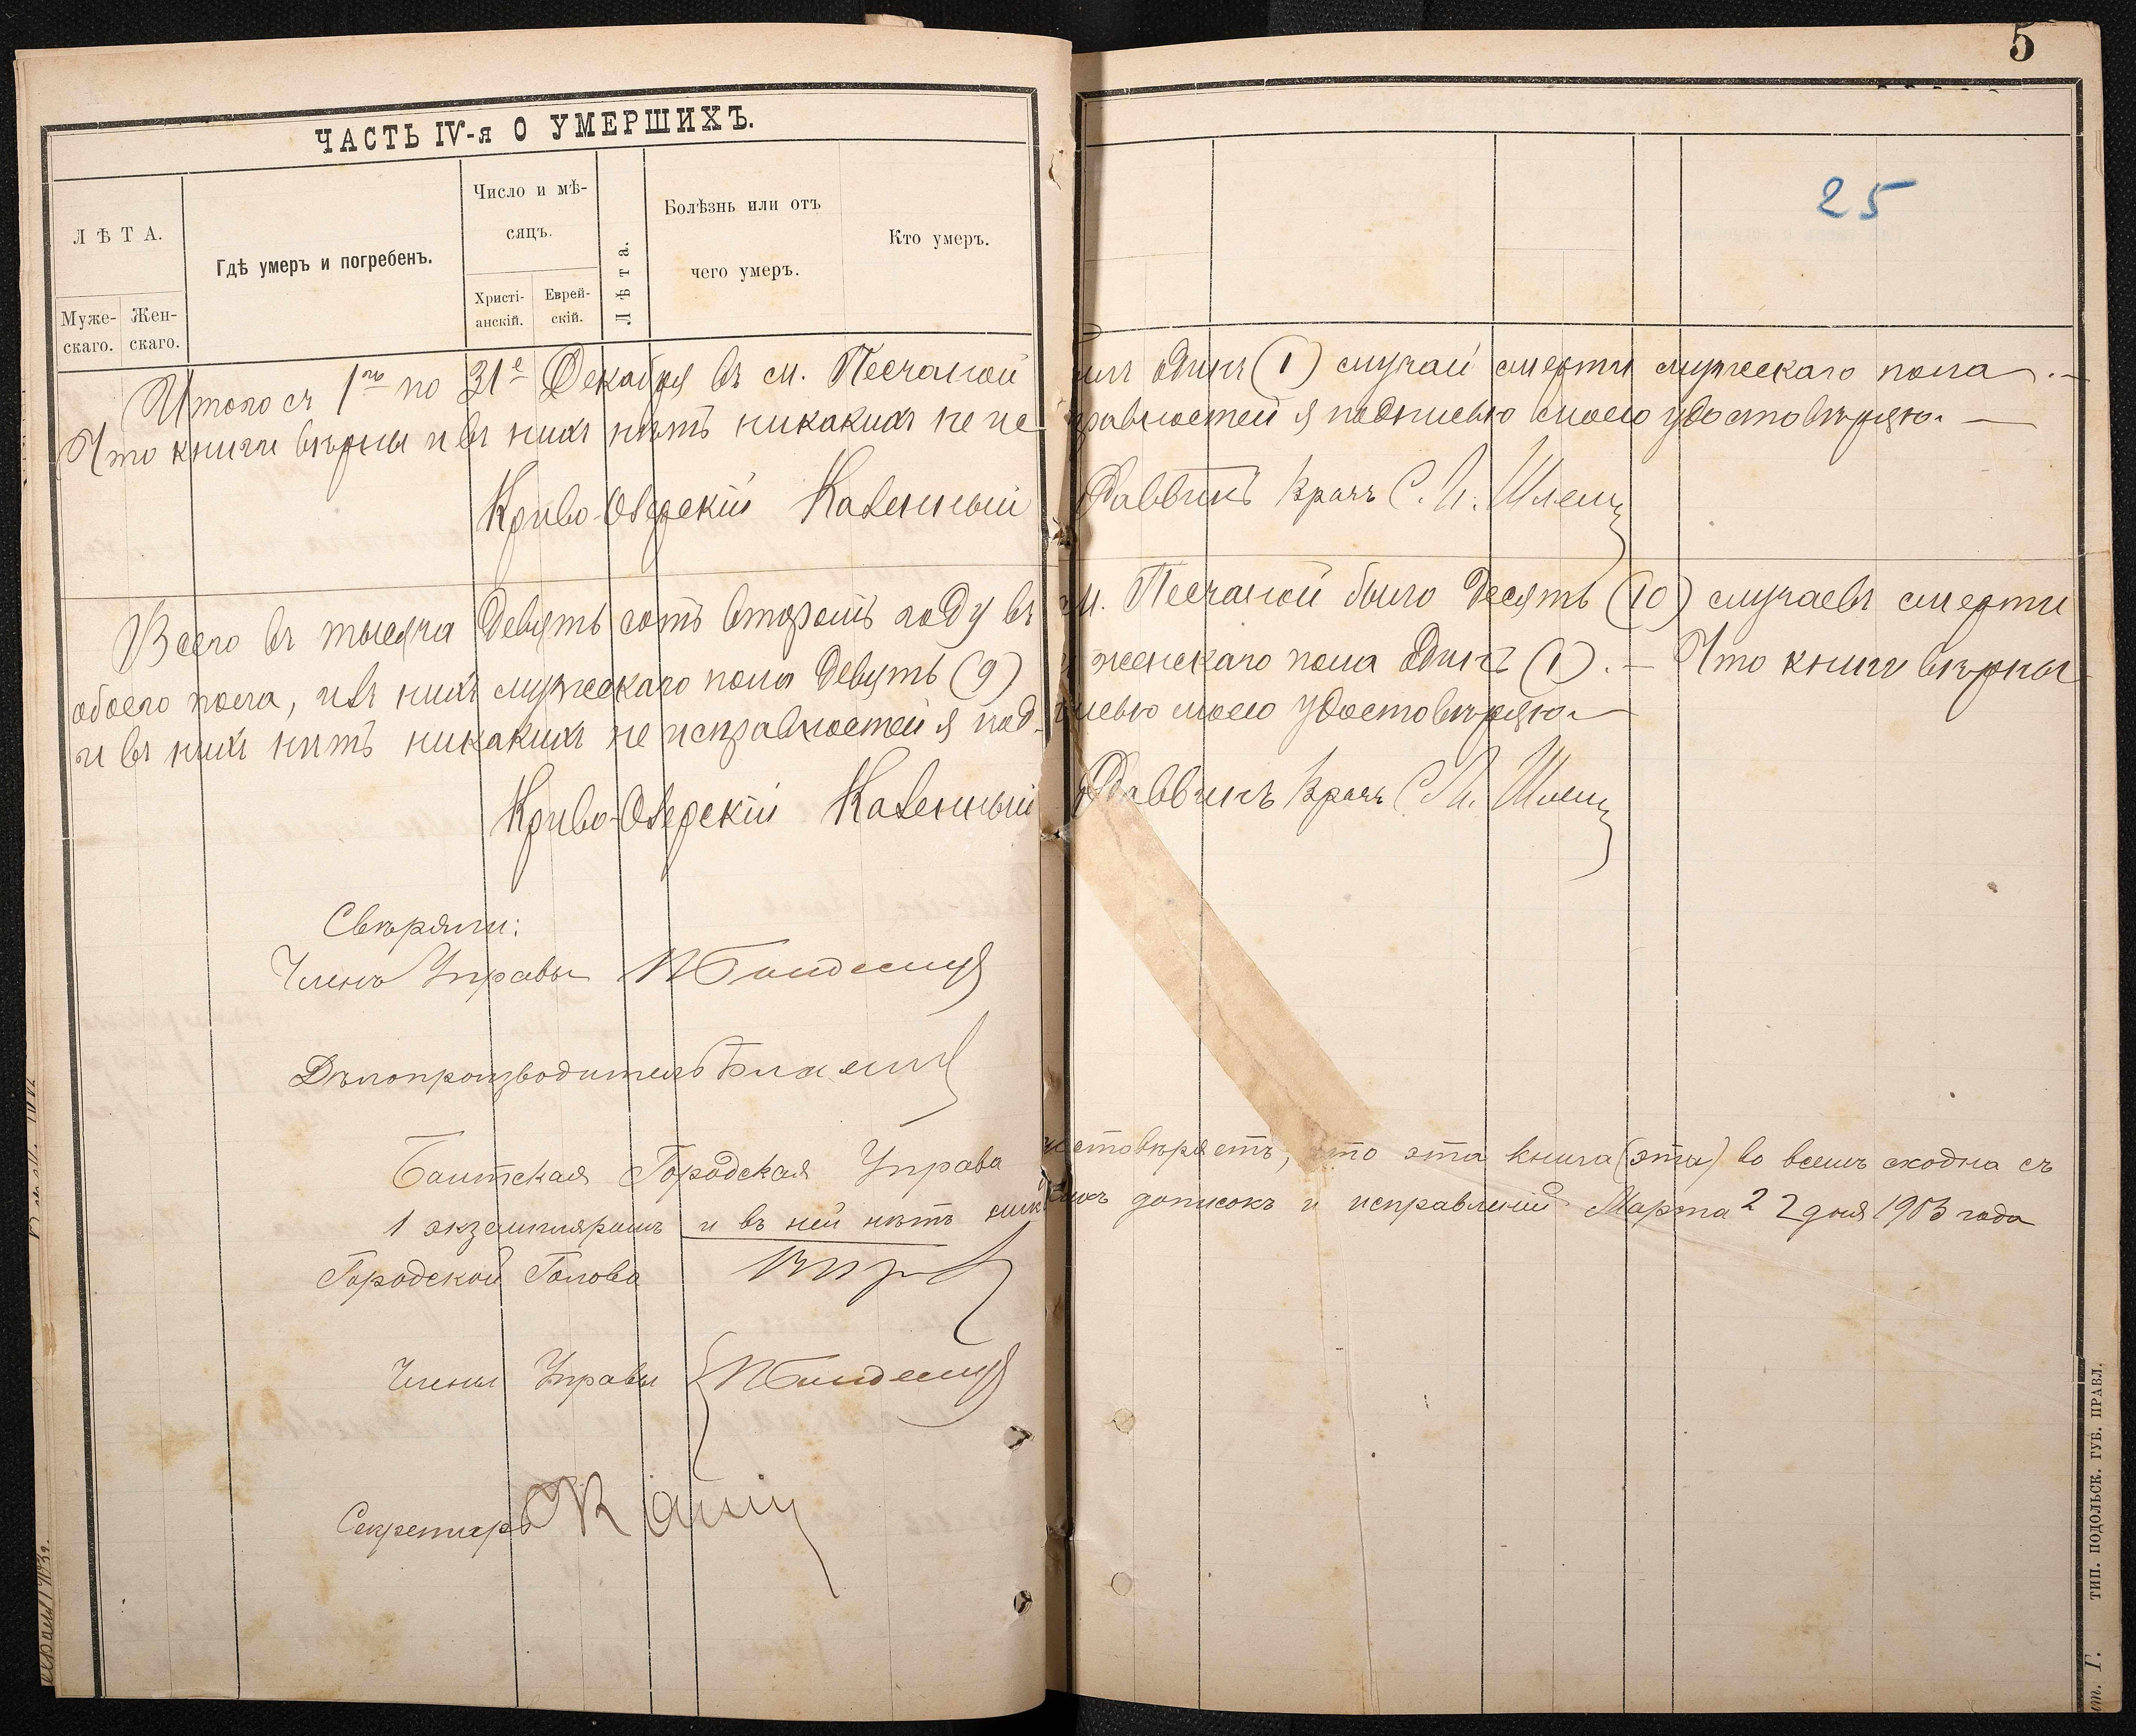 5
ЧАСТЬ IV-я О УМЕРШИХЪ.
25
ЛѢТА.
Муже-
скаго.
Жен-
скаго.
Гдѣ умеръ и погребенъ.
Число и мѣ-
сяцъ.
Христі-
анскій.
Еврей-
скій.
Лѣта.
Болѣзнь или отъ
чего умеръ.
Кто умеръ.
Итого съ 1го по 31е Декабря въ м. Песчаной былъ одинъ (1) случай смерти мужескаго пола. —
Что книги вѣрны и въ нихъ нѣтъ никакихъ не исправностей я подписью моею удостовѣряю. —
Криво-Озерскій Казенный Раввинъ Врачъ С.
Всего въ тысяча девятьсотъ второмъ году въ м. Песчаной было десять (10) случаевъ смерти
обоего пола, изъ нихъ мужескаго пола девять (9) и женскаго пола одинъ (1). — Что книги вѣрны
и въ нихъ нѣтъ никакихъ не исправностей я подписью моею удостовѣряю —
Криво-Озерскій Казенный Раввинъ Врачъ С.
Свѣряли:
Членъ Управы
Дѣлопроизводитель
Балтская Городская Управа удостовѣряетъ, что эта книга (эта) во всемъ сходна съ
1 экземпляромъ и въ ней нѣтъ никакихъ дописокъ и исправленій Марта 22 дня 1903 года
Городской Голова
Члены Управы
Секретарь
ТИП. ПОДОЛЬСК. ГУБ. ПРАВЛ.